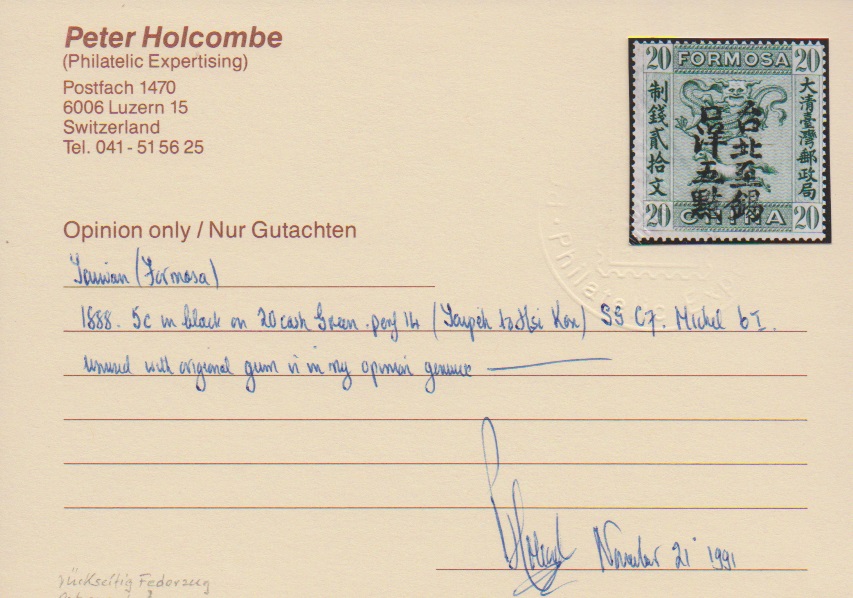 Peter Holcombe
(Philatelic Expertising)
Postfach 1470
6006 Luzern 15
Switzerland
Tel. 041 - 51 56 25
20 FORMOSA 20
大清臺灣郵政局
制錢貳拾文
台北至錫
口洋五點
20 CHINA 20
Opinion only / Nur Gutachten
Taiwan (Formosa)
1888. 5c in black on 20 cash Green. perf 14 (Taipeh to Hsi Kow) SG C7. Michel 6 I.
Unused with original gum is in my opinion genuine
November 21 1991
rückseitig Federzug